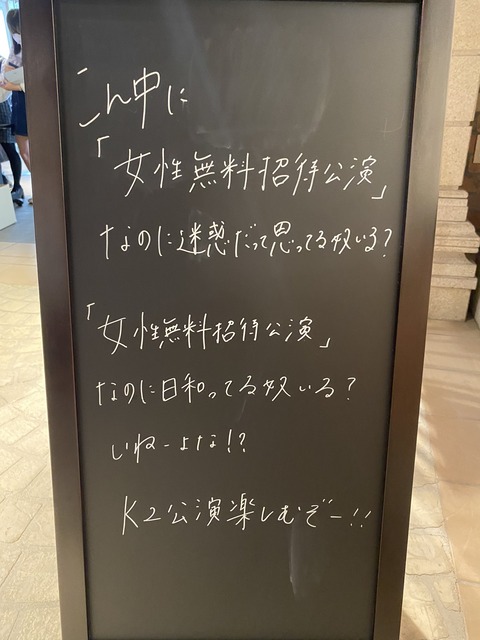 こん中に
「女性無料招待公演」
なのに迷惑だって思ってる奴いる?
「女性無料招待公演」
なのに日和ってる奴いる?
いねーよな!?
K2公演楽しむぞー!!